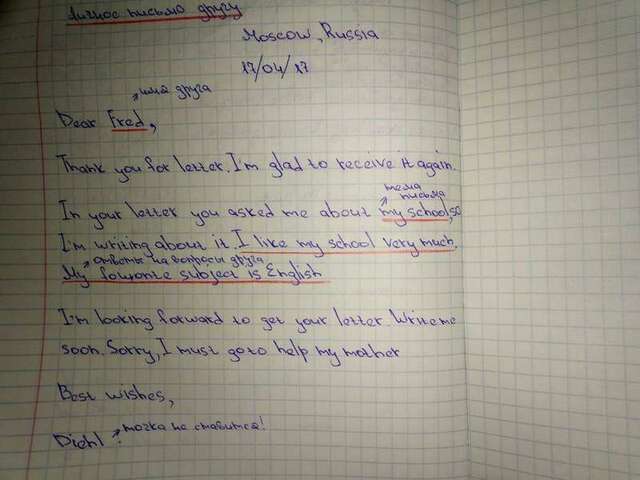 личное письмо другу
Moscow, Russia
17/04/17
имя друга
Dear Fred,
Thank you for letter. I'm glad to receive it again.
тема
письма
In your letter you asked me about my school, so
I'm writing about it. I like my school very much.
ответы на вопросы друга
My favourite subject is English
I'm looking forward to get your letter. Write me
soon. Sorry, I must go to help my mother
Best wishes,
Diehl
точка не ставится!